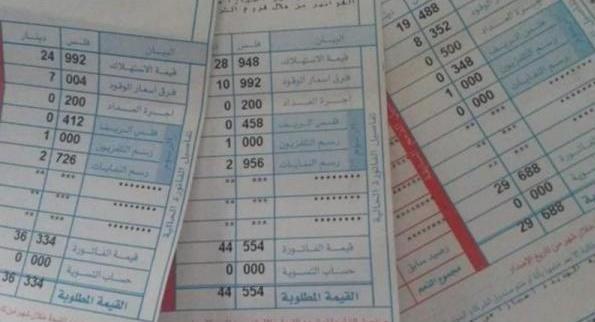 دينار فلس البيان
24 992 قيمة الاستهلاك
7 004 فرق أسعار الوقود
0 200 اجرة العداد
0 412 فلس الريف
1 000 رسم التلفزيون
2 726 رسم النفايات
** *** ********
** *** ********
36 334 قيمة الفاتورة
0 000 حساب التسوية
36 334 القيمة المطلوبة
الرسوم
تفاصيل الفاتورة الحالية
دينار فلس البيان
28 948 قيمة الاستهلاك
10 992 فرق أسعار الوقود
0 200 اجرة العداد
0 458 فلس الريف
1 000 رسم التلفزيون
2 956 رسم النفايات
** *** ********
** *** ********
** *** ********
44 554 قيمة الفاتورة
0 000 حساب التسوية
44 554 القيمة المطلوبة
الرسوم
تفاصيل الفاتورة الحالية
19 488
8 352
0 500
0 348
1 000
0 000
** ***
** ***
** ***
29 688
0 000
29 688
رصيد سابق
مجموع الذمم